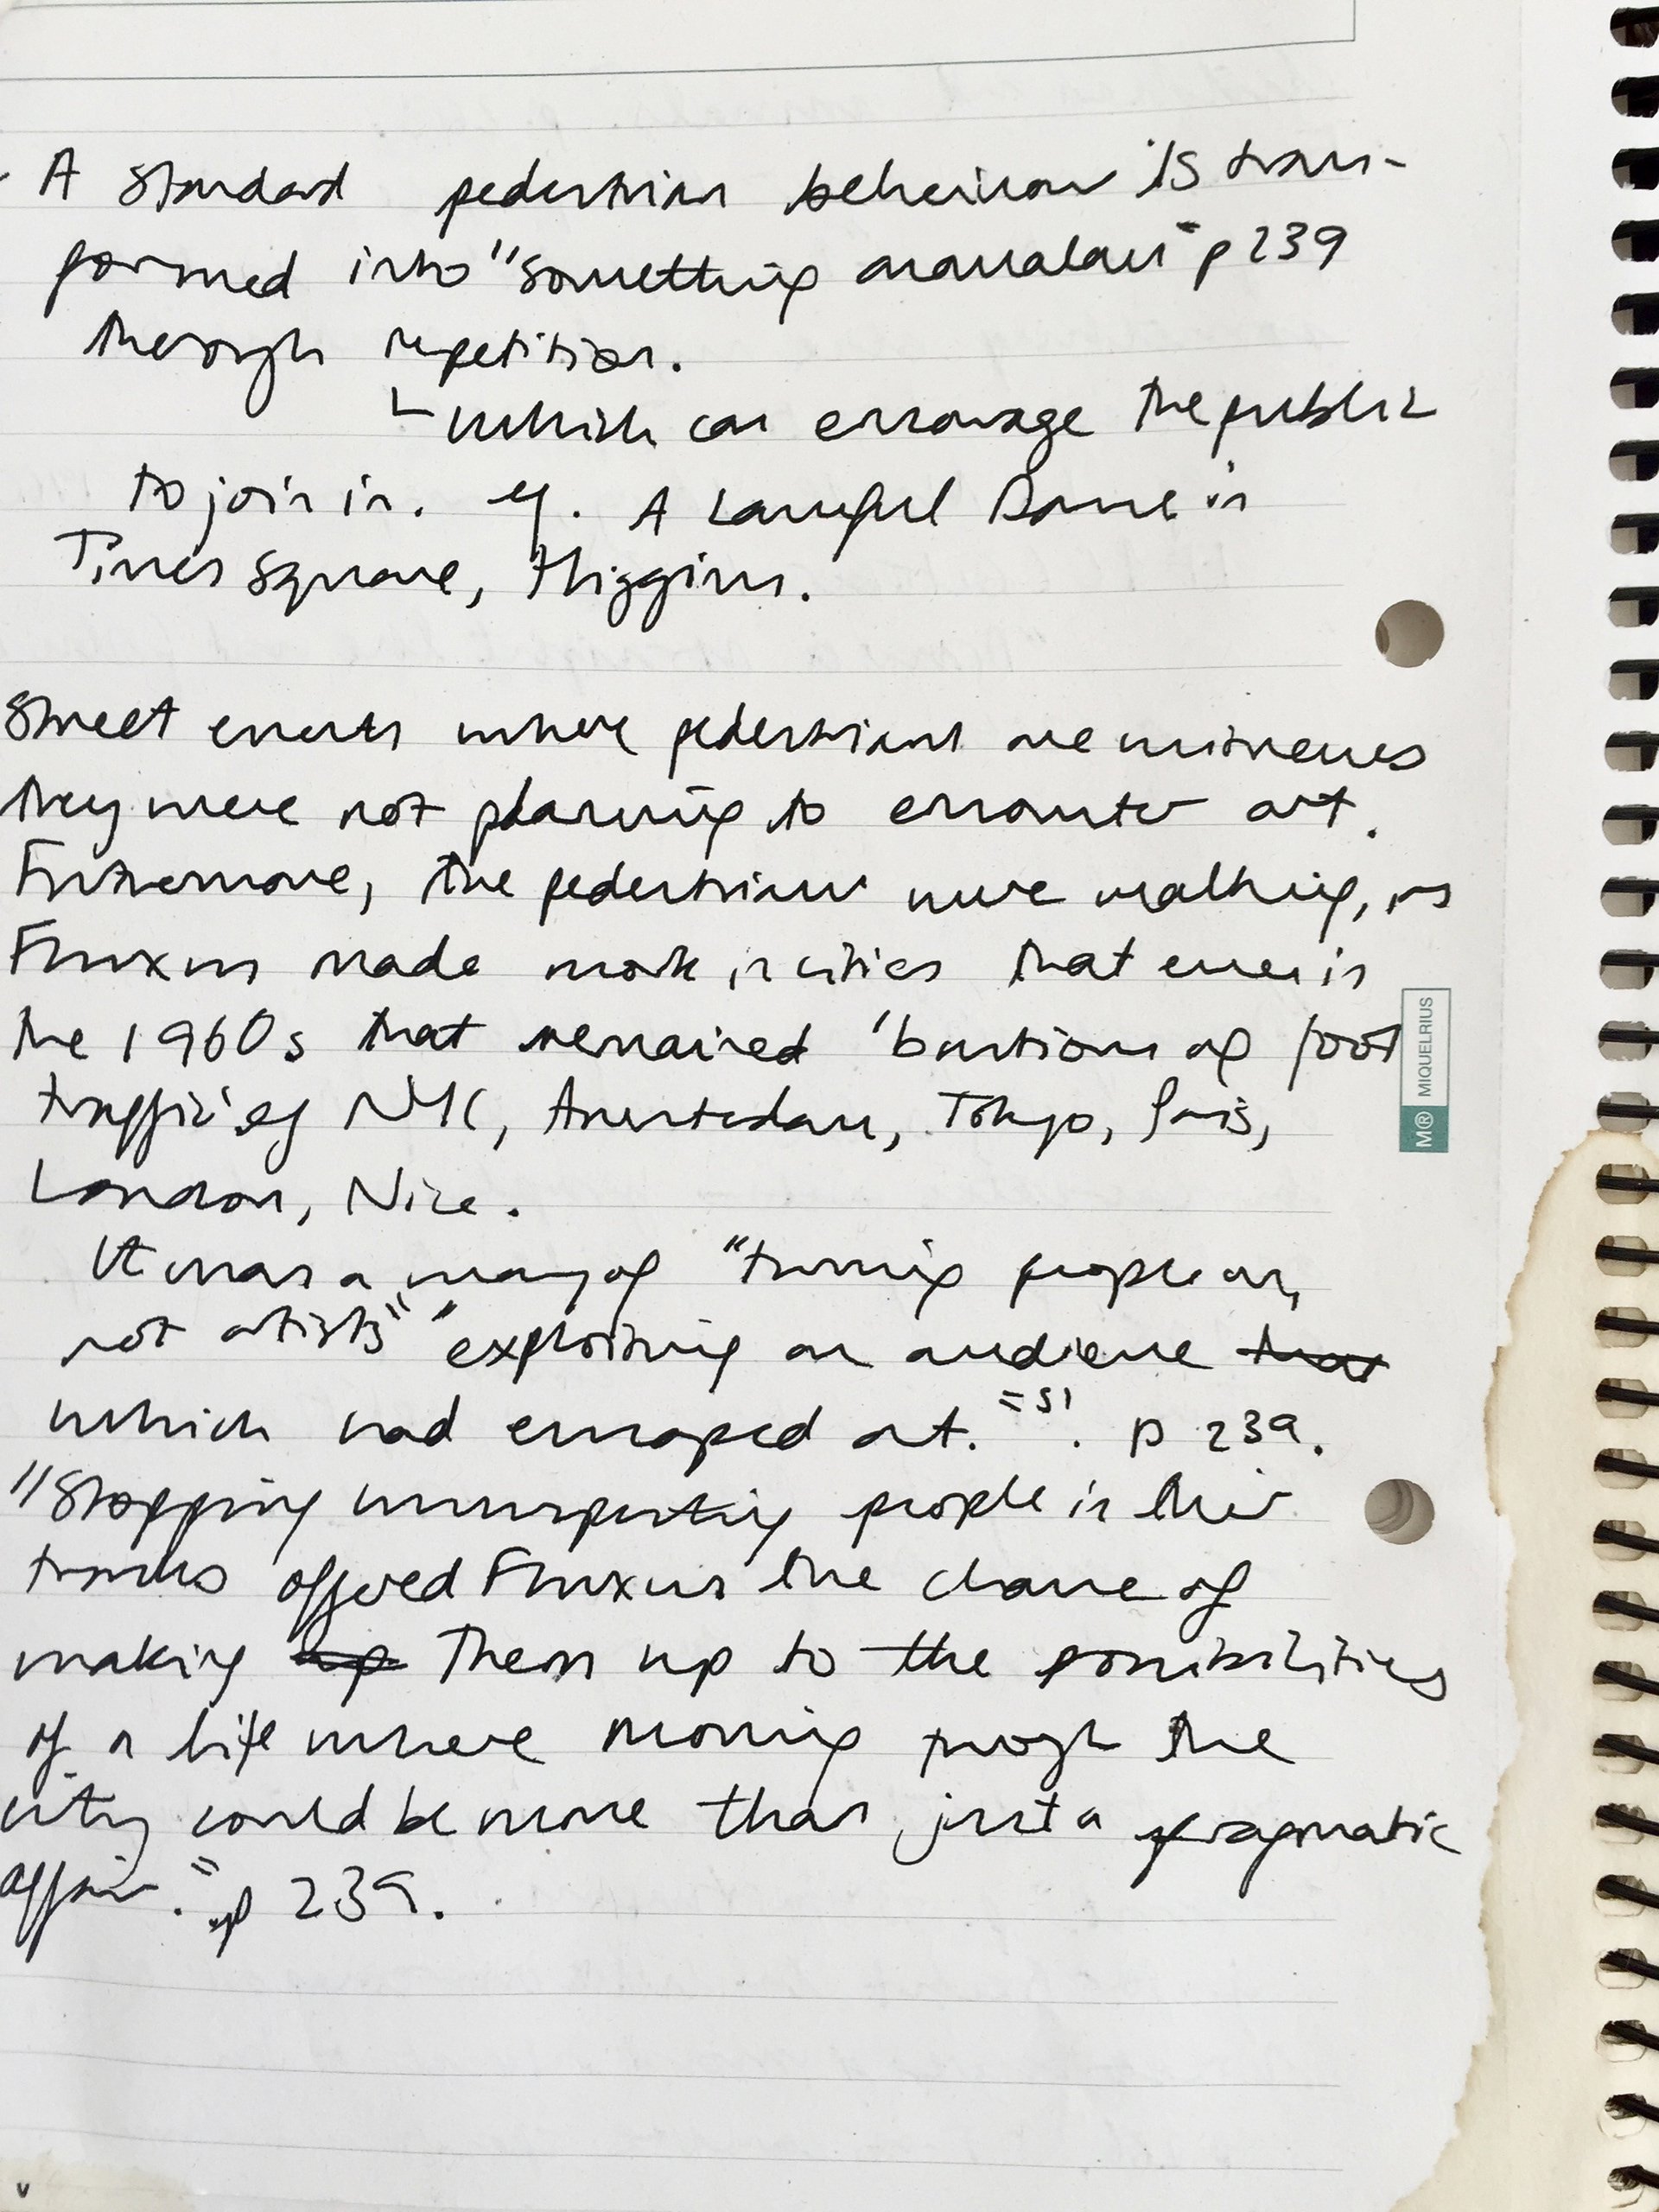 - A standard pedestrian behaviour is trans-
formed into "something anomalous" p239
through repetition.
which can encourage the public
to join in. eg. A Lawful Dance in
Times Square, Higgins.
Street events where pedestrians are witnesses
they were not planning to encounter art.
Furthermore, the pedestrians were walking, as
Fluxus made work in cities that even in
the 1960s that remained 'bastions of foot
traffic' eg NYC, Amsterdam, Tokyo, Paris,
London, Nice.
It was a way of "turning people on,
not artists" "exploiting an audience that
which had escaped art." 51. p 239.
"Stopping unsuspecting people in their
tracks offered Fluxus the chance of
making up them up to the possibilities
of a life where moving through the
city could be more than just a pragmatic
affair." p 239.
M® MIQUELRIUS